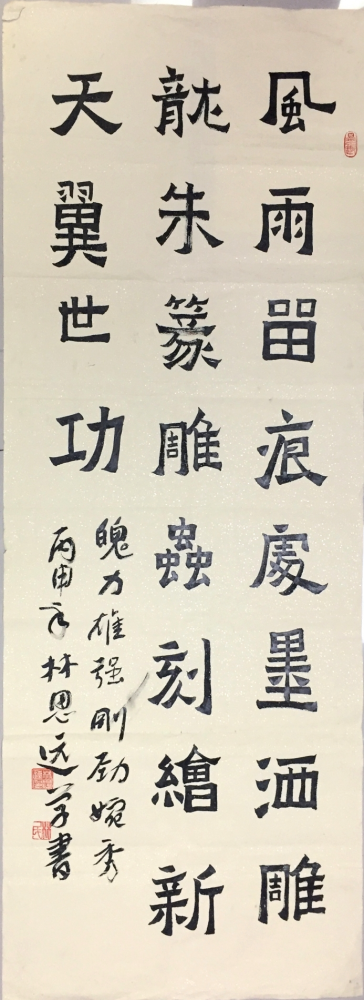 風雨畱痕處墨洒雕
龍朱篆雕蟲刻繪新
天翼世功
魄力雄强剛劲婉秀
丙申年林恩远学書